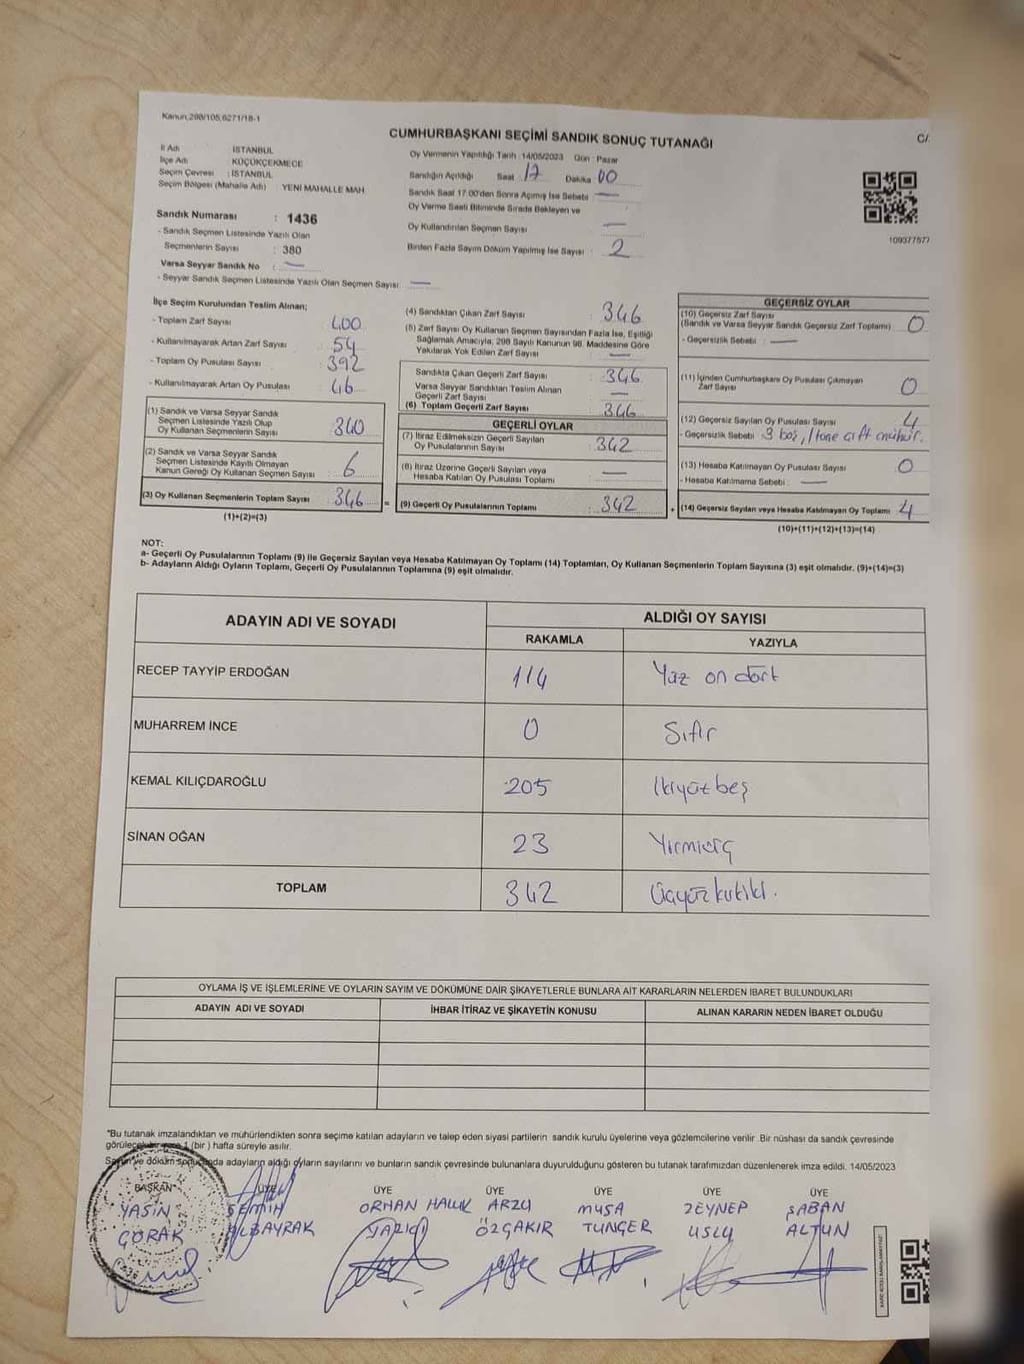 Kanun,298/105,6271/18-1
CUMHURBAŞKANI SEÇİMİ SANDIK SONUÇ TUTANAĞI
C/
İl Adı : İSTANBUL
İlçe Adı : KÜÇÜKÇEKMECE
Seçim Çevresi : İSTANBUL
Seçim Bölgesi (Mahalle Adı) YENİ MAHALLE MAH.
Oy Vermenin Yapıldığı Tarih 14/05/2023 Gün Pazar
Sandığın Açıldığı Saat 17 Dakika 00
Sandık Saat 17.00'den Sonra Açılmış İse Sebebi : —
Oy Verme Saati Bitiminde Sırada Bekleyen ve
Oy Kullandırılan Seçmen Sayısı : —
Birden Fazla Sayım Döküm Yapılmış İse Sayısı : 2
109377577
Sandık Numarası : 1436
- Sandık Seçmen Listesinde Yazılı Olan
Seçmenlerin Sayısı : 380
Varsa Seyyar Sandık No : —
- Seyyar Sandık Seçmen Listesinde Yazılı Olan Seçmen Sayısı: —
İlçe Seçim Kurulundan Teslim Alınan;
- Toplam Zarf Sayısı : 400
- Kullanılmayarak Artan Zarf Sayısı : 54
- Toplam Oy Pusulası Sayısı : 392
- Kullanılmayarak Artan Oy Pusulası : 46
(1) Sandık ve Varsa Seyyar Sandık
Seçmen Listesinde Yazılı Olup
Oy Kullanan Seçmenlerin Sayısı : 340
(2) Sandık ve Varsa Seyyar Sandık
Seçmen Listesinde Kayıtlı Olmayan
Kanun Gereği Oy Kullanan Seçmen Sayısı : 6
(3) Oy Kullanan Seçmenlerin Toplam Sayısı : 346
(1)+(2)=(3)
(4) Sandıktan Çıkan Zarf Sayısı : 346
(5) Zarf Sayısı Oy Kullanan Seçmen Sayısından Fazla İse, Eşitliği
Sağlamak Amacıyla, 298 Sayılı Kanunun 98. Maddesine Göre
Yakılarak Yok Edilen Zarf Sayısı : —
Sandıkta Çıkan Geçerli Zarf Sayısı : 346
Varsa Seyyar Sandıktan Teslim Alınan
Geçerli Zarf Sayısı : —
(6) Toplam Geçerli Zarf Sayısı : 346
GEÇERLİ OYLAR
(7) İtiraz Edilmeksizin Geçerli Sayılan
Oy Pusulalarının Sayısı : 342
(8) İtiraz Üzerine Geçerli Sayılan veya
Hesaba Katılan Oy Pusulası Toplamı : —
= (9) Geçerli Oy Pusulalarının Toplamı : 342
GEÇERSİZ OYLAR
(10) Geçersiz Zarf Sayısı
(Sandık ve Varsa Seyyar Sandık Geçersiz Zarf Toplamı) : 0
- Geçersizlik Sebebi : —
(11) İçinden Cumhurbaşkanı Oy Pusulası Çıkmayan
Zarf Sayısı 0
(12) Geçersiz Sayılan Oy Pusulası Sayısı : 4
- Geçersizlik Sebebi 3 boş, 1 tane çift mühür.
(13) Hesaba Katılmayan Oy Pusulası Sayısı : 0
- Hesaba Katılmama Sebebi : —
+ (14) Geçersiz Sayılan veya Hesaba Katılmayan Oy Toplamı 4
(10)+(11)+(12)+(13)=(14)
NOT:
a- Geçerli Oy Pusulalarının Toplamı (9) ile Geçersiz Sayılan veya Hesaba Katılmayan Oy Toplamı (14) Toplamları, Oy Kullanan Seçmenlerin Toplam Sayısına (3) eşit olmalıdır. (9)+(14)=(3)
b- Adayların Aldığı Oyların Toplamı, Geçerli Oy Pusulalarının Toplamına (9) eşit olmalıdır.
ADAYIN ADI VE SOYADI ALDIĞI OY SAYISI
RAKAMLA YAZIYLA
RECEP TAYYİP ERDOĞAN 114 Yüz on dört
MUHARREM İNCE 0 Sıfır
KEMAL KILIÇDAROĞLU 205 İkiyüzbeş
SİNAN OĞAN 23 Yirmiüç
TOPLAM 342 Üçyüzkırkiki.
OYLAMA İŞ VE İŞLEMLERİNE VE OYLARIN SAYIM VE DÖKÜMÜNE DAİR ŞİKAYETLERLE BUNLARA AİT KARARLARIN NELERDEN İBARET BULUNDUKLARI
ADAYIN ADI VE SOYADI İHBAR İTİRAZ VE ŞİKAYETİN KONUSU ALINAN KARARIN NEDEN İBARET OLDUĞU
"Bu tutanak imzalandıktan ve mühürlendikten sonra seçime katılan adayların ve talep eden siyasi partilerin sandık kurulu üyelerine veya gözlemcilerine verilir. Bir nüshası da sandık çevresinde
görülecek bir yere 1 (bir) hafta süreyle asılır.
Sayım ve döküm sonucunda adayların aldığı oyların sayılarını ve bunların sandık çevresinde bulunanlara duyurulduğunu gösteren bu tutanak tarafımızdan düzenlenerek imza edildi. 14/05/2023
BAŞKAN ÜYE ÜYE ÜYE ÜYE ÜYE ÜYE
YASİN SEMİH ORHAN HALUK ARZU MUSA ZEYNEP ŞABAN
ÇORAK ALBAYRAK YAZICI ÖZÇAKIR TUNÇER USLU ALTUN